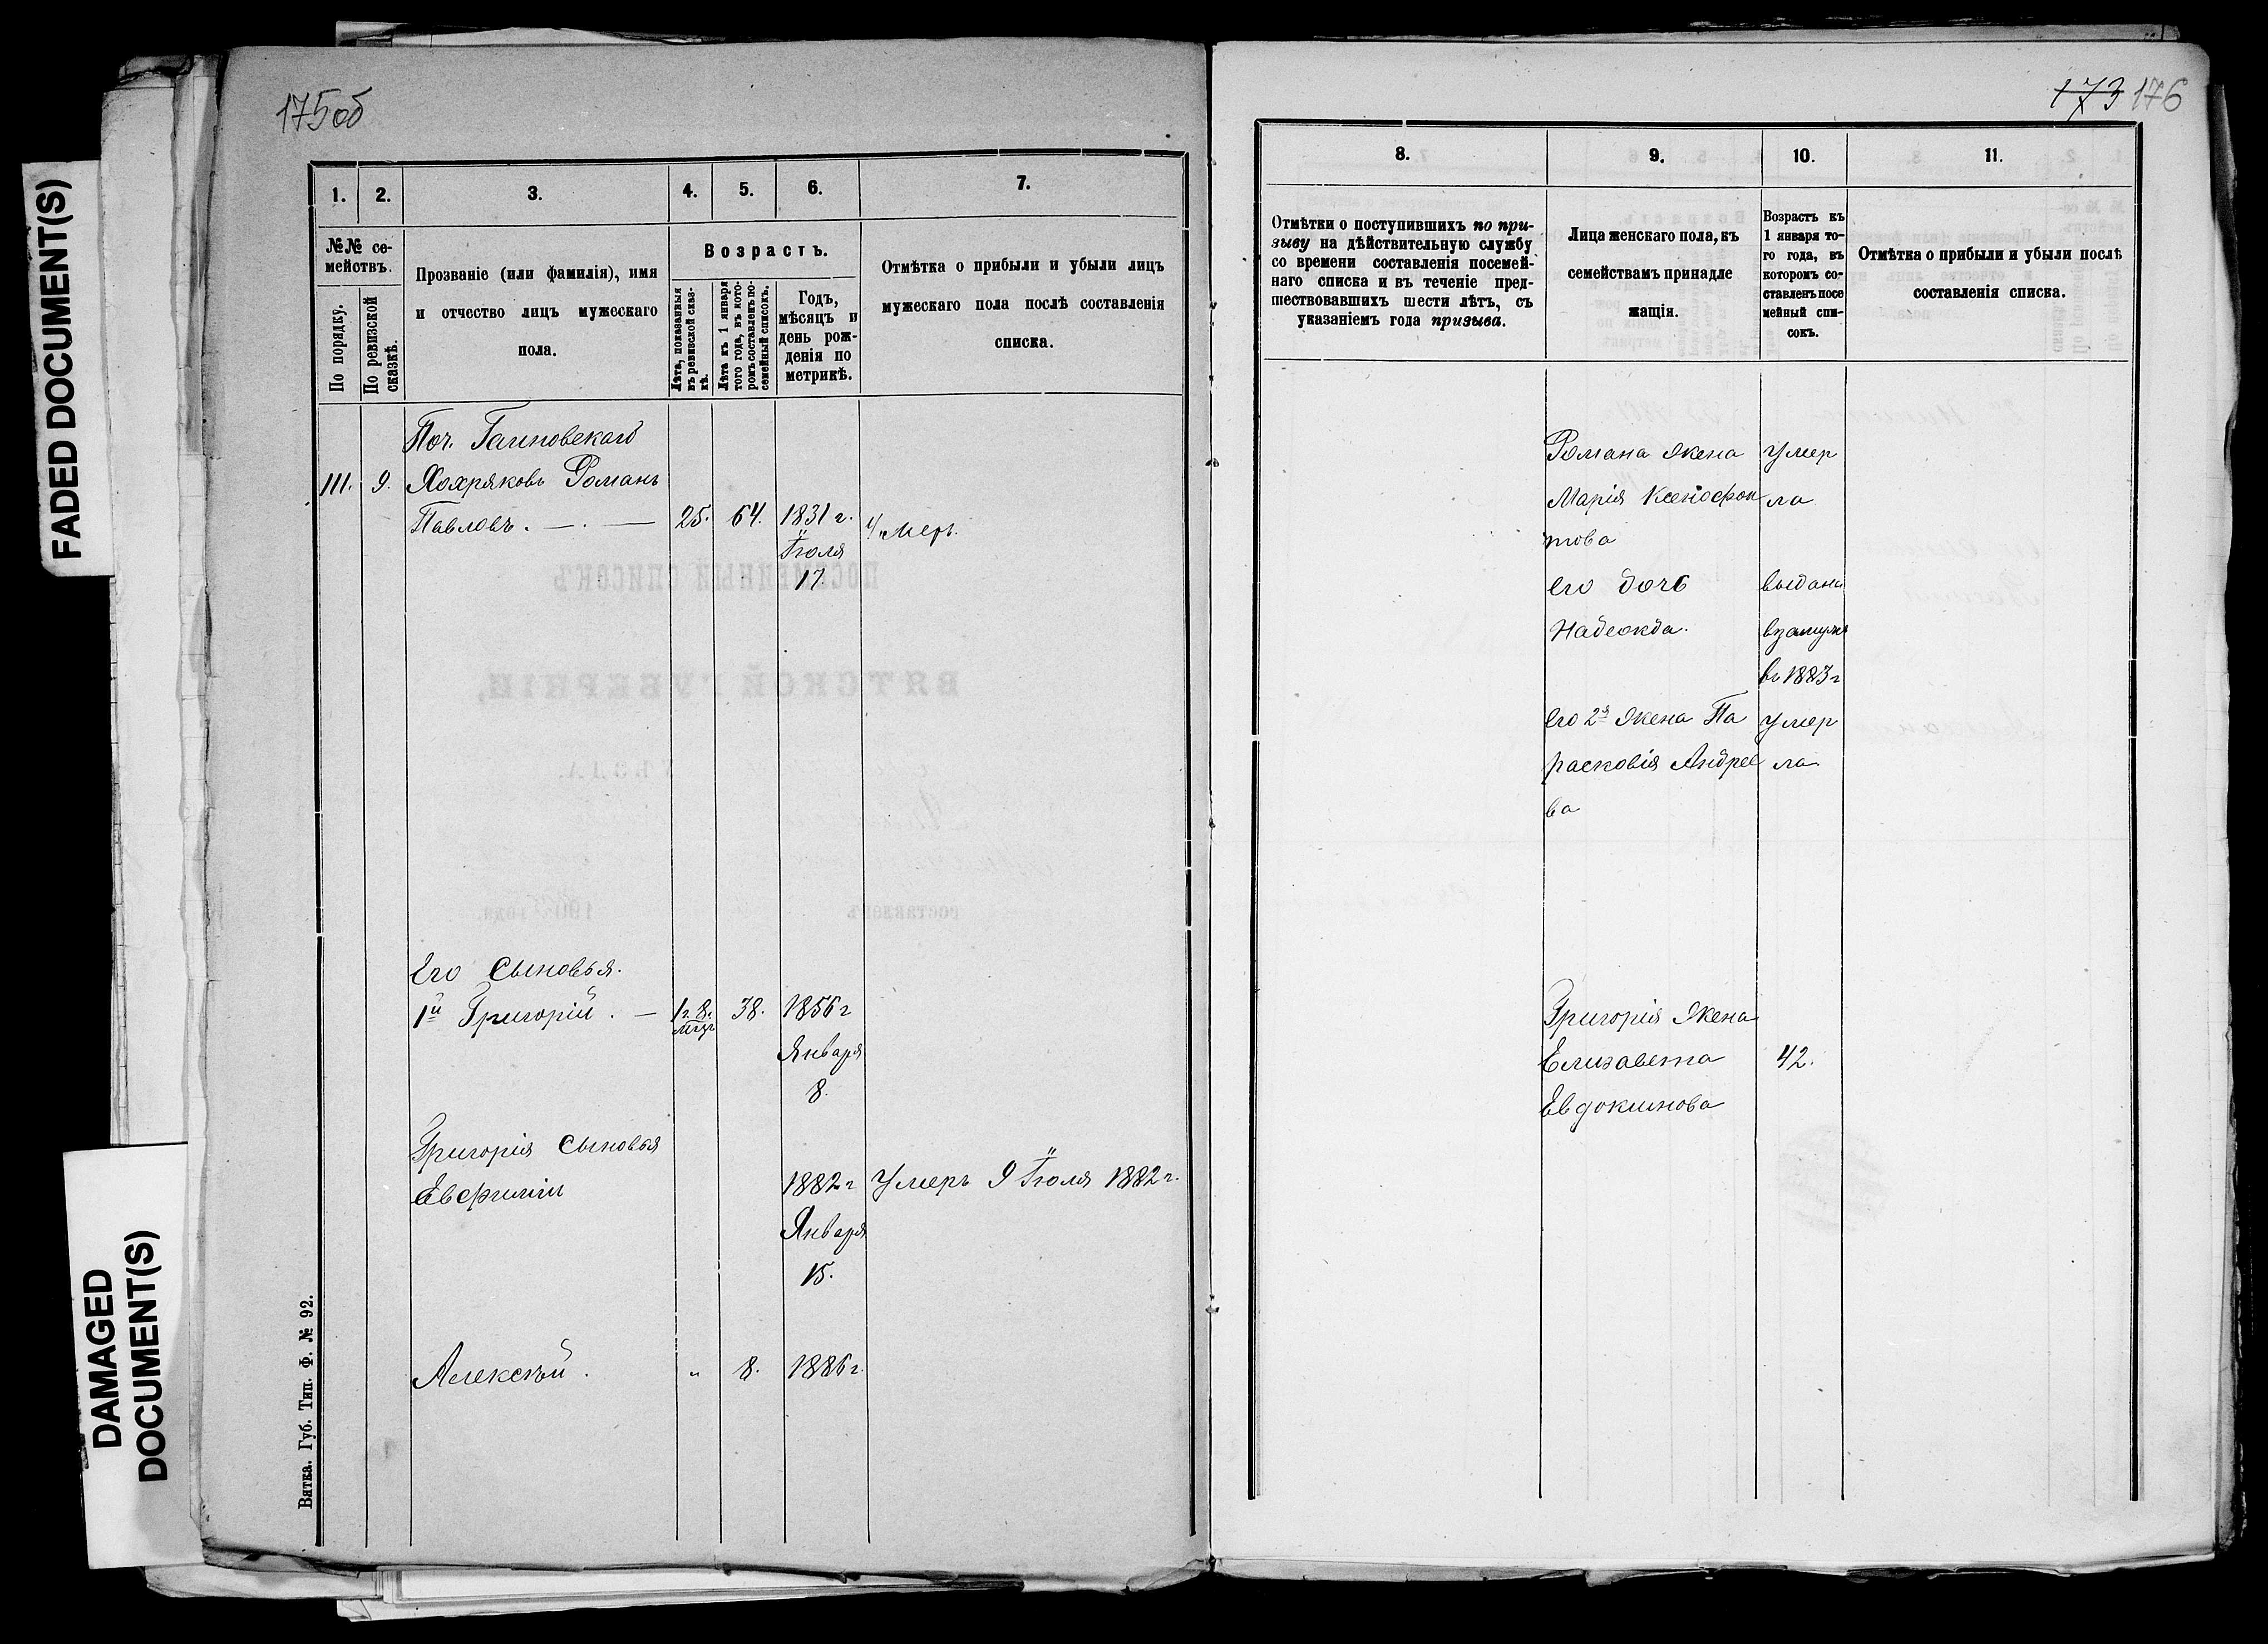 175об
1.
2.
3.
4.
5.
6.
7.
№№ се-
мействъ.
По порядку.
По ревизской
сказкѣ.
Прозваніе (или фамилія), имя
и отчество лицъ мужескаго
пола.
Возрастъ.
Лѣта, показанныя
въ ревизской сказ-
кѣ.
Лѣта къ 1 января
того года, въ кото-
ромъ составленъ по-
семейный списокъ.
Годъ,
мѣсяцъ и
день рож-
денія по
метрикѣ.
Отмѣтка о прибыли и убыли лицъ
мужескаго пола послѣ составленія
списка.
Поч.
111. 9. Хохряковъ Романъ
Павловъ. — . — 25. 64. 1831 г. Умеръ.
Іюля
17.
Его Сыновья.
1й Григорій . — 1 г. 8. 38. 1856 г
мѣс
Января
8.
Григорія Сыновья
Евфимій 1882 г Умеръ 9 Іюля 1882 г.
Января
15.
Алексѣй . „ 8. 1886 г.
Вятка. Губ. Тип. Ф. № 92.
173 176
8.
9.
10.
11.
Отмѣтки о поступившихъ по при-
зыву на дѣйствительную службу
со времени составленія посемей-
наго списка и въ теченіе пред-
шествовавшихъ шести лѣтъ, съ
указаніемъ года призыва.
Лица женскаго пола, къ
семействамъ принадле
жащія.
Возрастъ къ
1 января то-
го года, въ
которомъ со-
ставленъ посе
мейный спи-
сокъ.
Отмѣтка о прибыли и убыли послѣ
составленія списка.
Романа жена умер
Марія Ксенофон ла
това
его дочь выдана
Надежда. взамужъ
въ 1883 г
его 2я жена Па умер
расковія Андрее ла
ва
Григорія жена
Елизавета 42.
Евдокимова
FADED DOCUMENT(S)
DAMAGED
DOCUMENT(S)